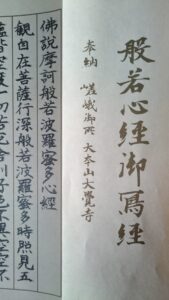 般若心經御寫經
奉納 嵯峨御所 大本山大覺寺
佛說摩訶般若波羅蜜多心經
觀自在菩薩行深般若波羅蜜多時照見五
蘊皆空度一切苦厄舍利子色不異空空不